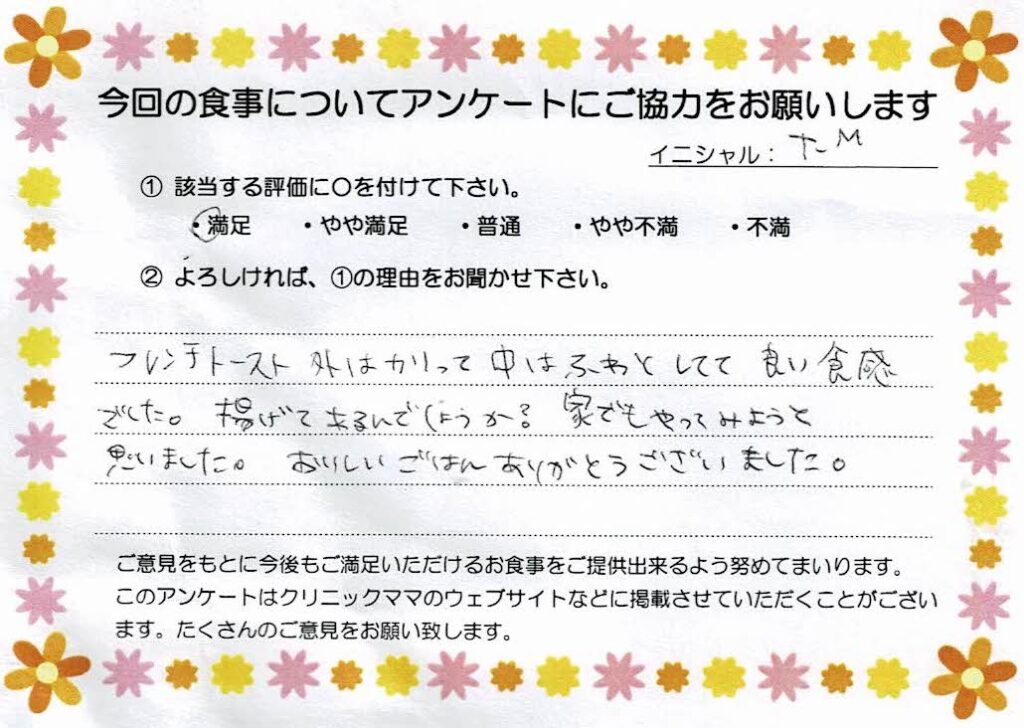 今回の食事についてアンケートにご協力をお願いします
イニシャル： T.M
① 該当する評価に○を付けて下さい。
・満足 ・やや満足 ・普通 ・やや不満 ・不満
② よろしければ、①の理由をお聞かせ下さい。
フレンチトースト 外はカリって 中はふわっとしてて 良い食感
でした。 揚げて来るんでしょうか？ 家でもやってみようと
思いました。 おいしいごはんありがとうございました。
ご意見をもとに今後もご満足いただけるお食事をご提供出来るよう努めてまいります。
このアンケートはクリニックママのウェブサイトなどに掲載させていただくことがござい
ます。たくさんのご意見をお願い致します。